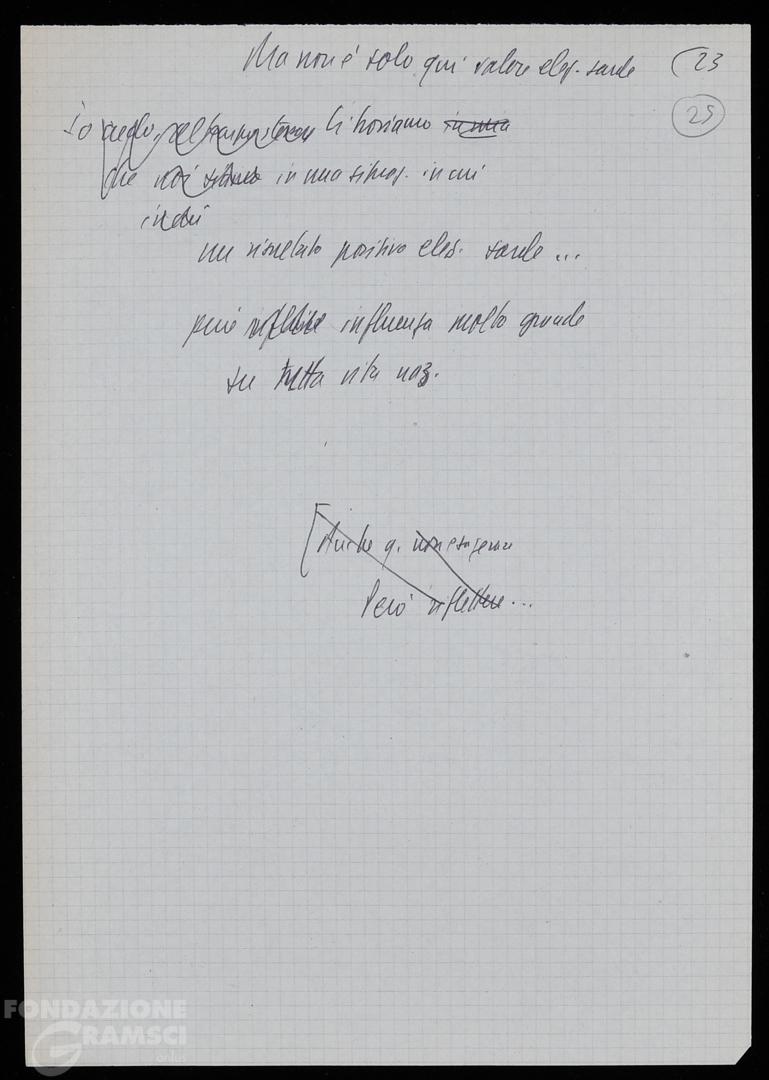 Ma non è solo qui valore elez. sarde (23
25
Io credo, Ci troviamo in una
che noi siamo in una situaz. in cui
in cui
un risultato positivo elez. sarde ...
può riflettere influenza molto grande
su tutta vita naz.
[Anche q. non esagerare
Però riflettere ...
FONDAZIONE
GRAMSCI
onlus